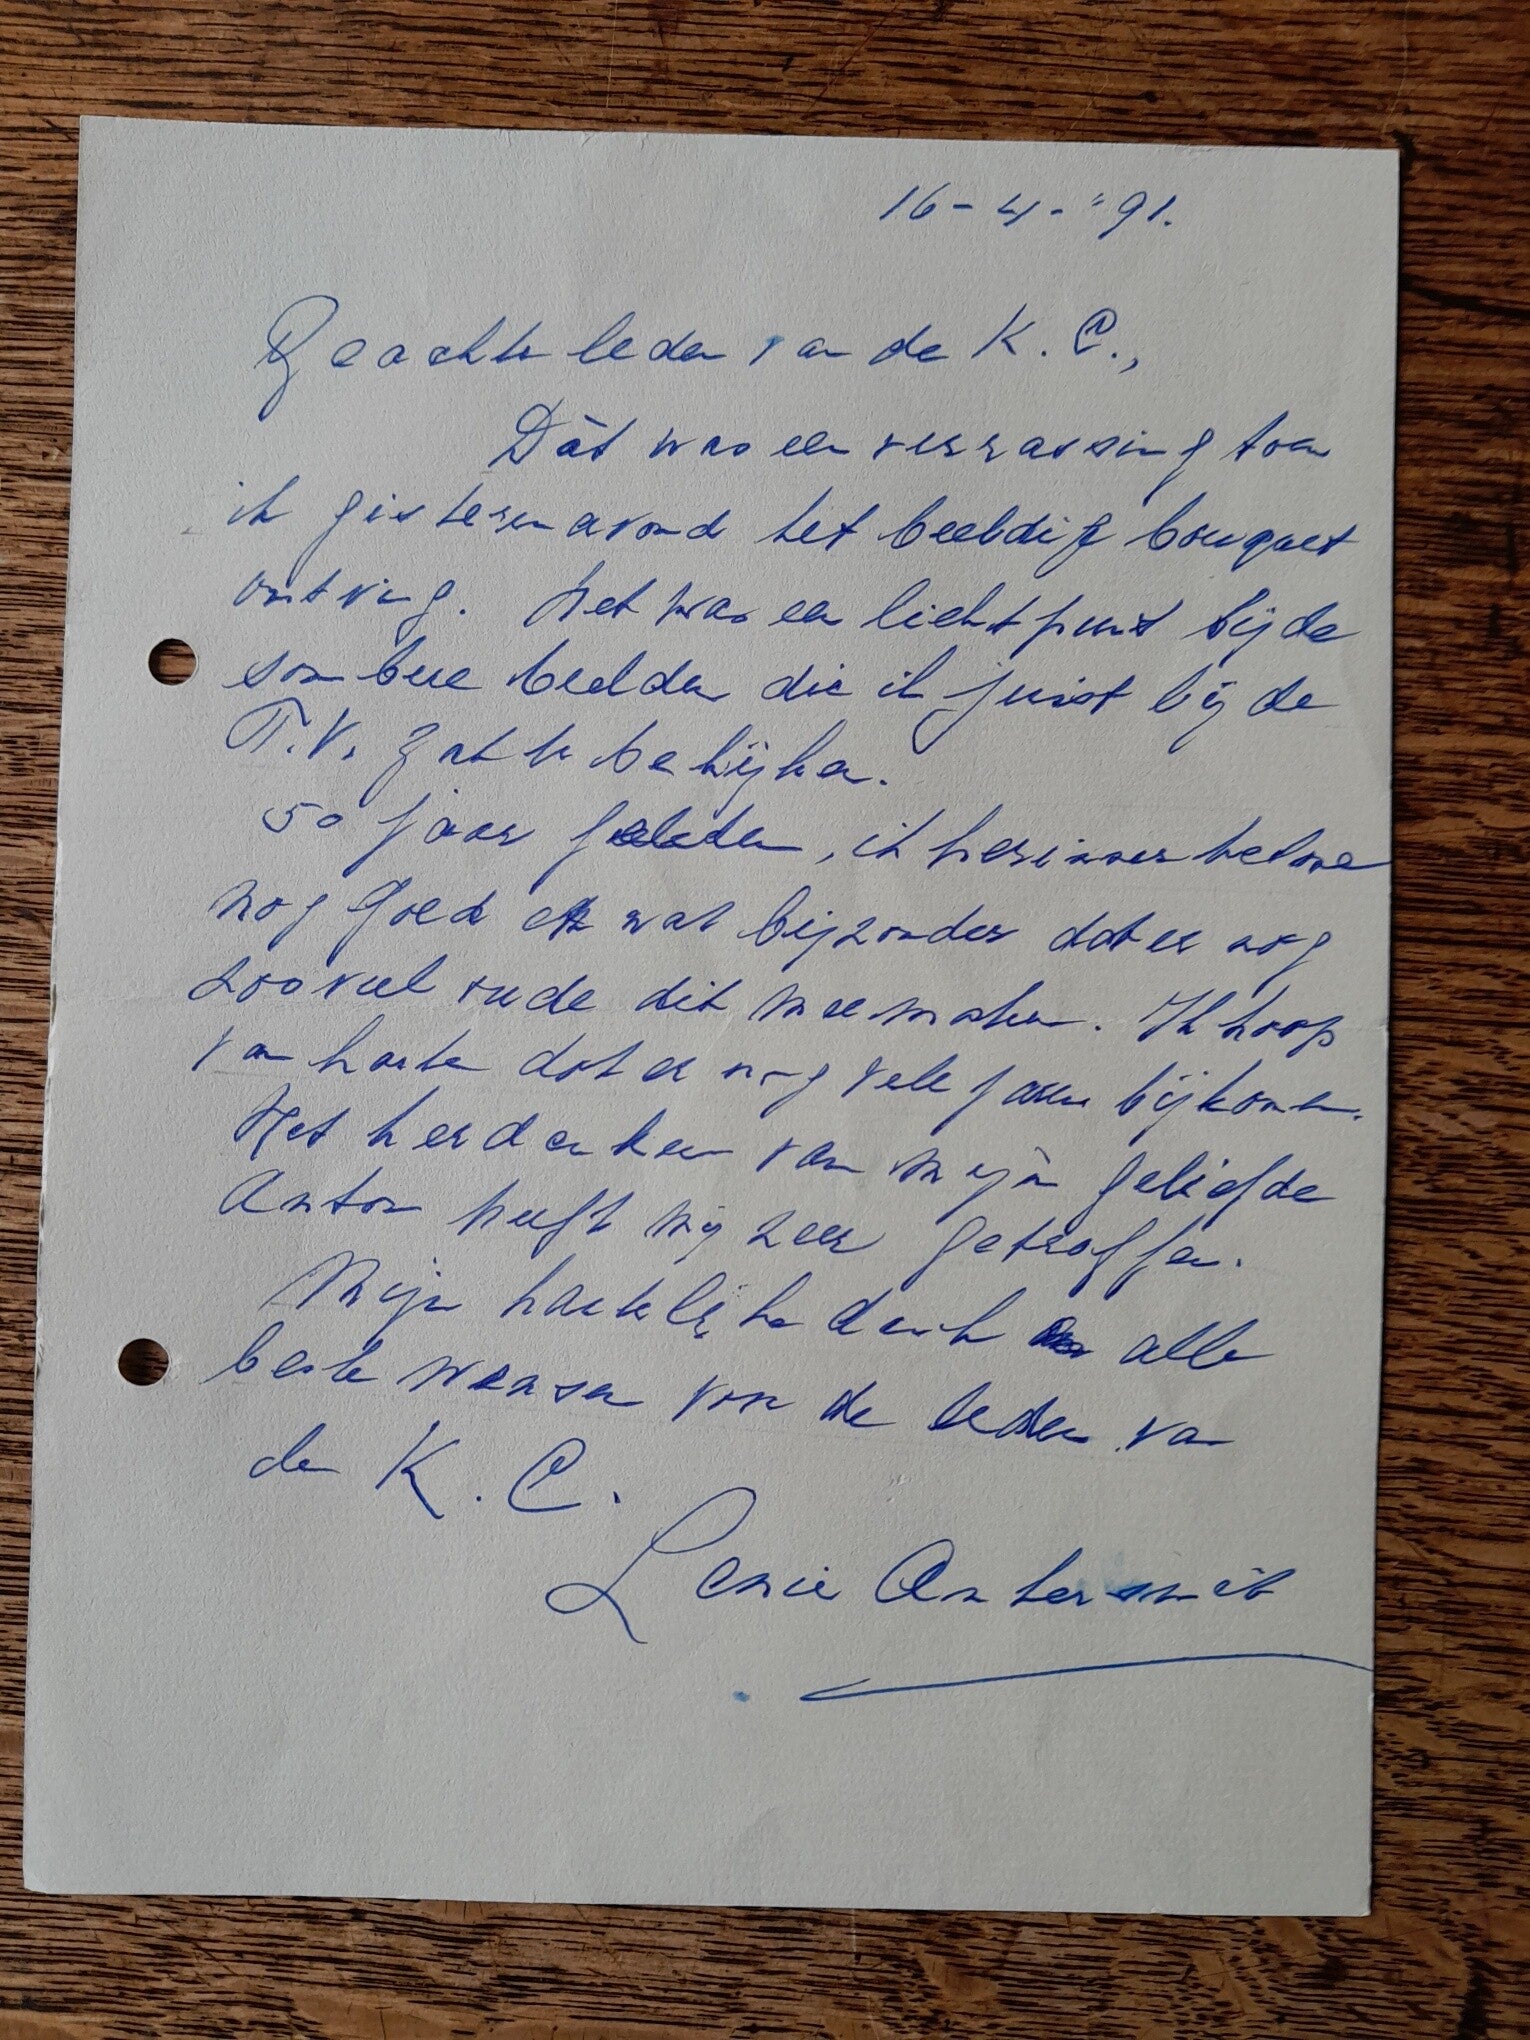 16-4-"91.
Geachte leden van de K.C.,
Dàt was een verrassing toen
ik gisterenavond het beeldig bouquet
ontving. Het was een lichtpunt bij de
sombere beelden die ik juist bij de
T.V. zat te bekijken.
50 jaar geleden, ik herinner het me
nog goed en wat bijzonder dat er nog
zooveel oude dit meemaken. Ik hoop
van harte dat er nog vele jaren bijkomen.
Het herdenken van mijn geliefde
Anton heeft mij zeer getroffen.
Mijn hartelijke dank en alle
beste wensen voor de leden van
de K.C.
Lenie